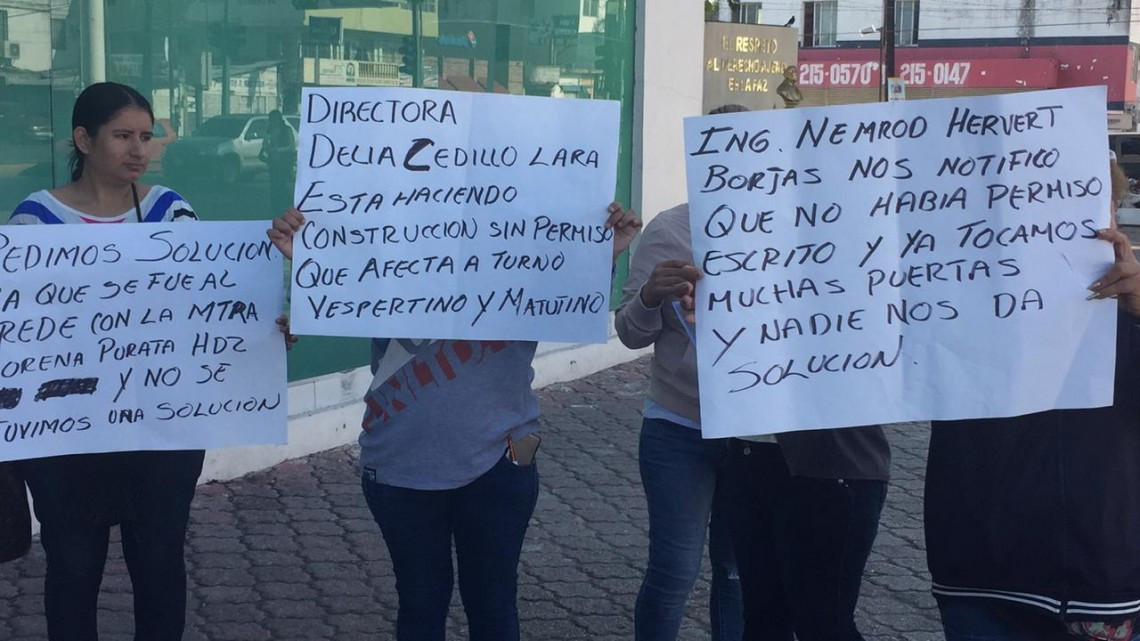 PEDIMOS SOLUCION.
YA QUE SE FUE AL
CREDE CON LA MTRA
LORENA PURATA HDZ
Y NO SE
TUVIMOS UNA SOLUCION
DIRECTORA
DELIA CEDILLO LARA
ESTA HACIENDO
CONSTRUCCION SIN PERMISO
QUE AFECTA A TURNO
VESPERTINO Y MATUTINO
ING. NEMROD HERVERT
BORJAS NOS NOTIFICO
QUE NO HABIA PERMISO
ESCRITO Y YA TOCAMOS
MUCHAS PUERTAS
Y NADIE NOS DA
SOLUCION.
EL RESPETO
AL DERECHO AJENO
ES LA PAZ
215-0570 215-0147